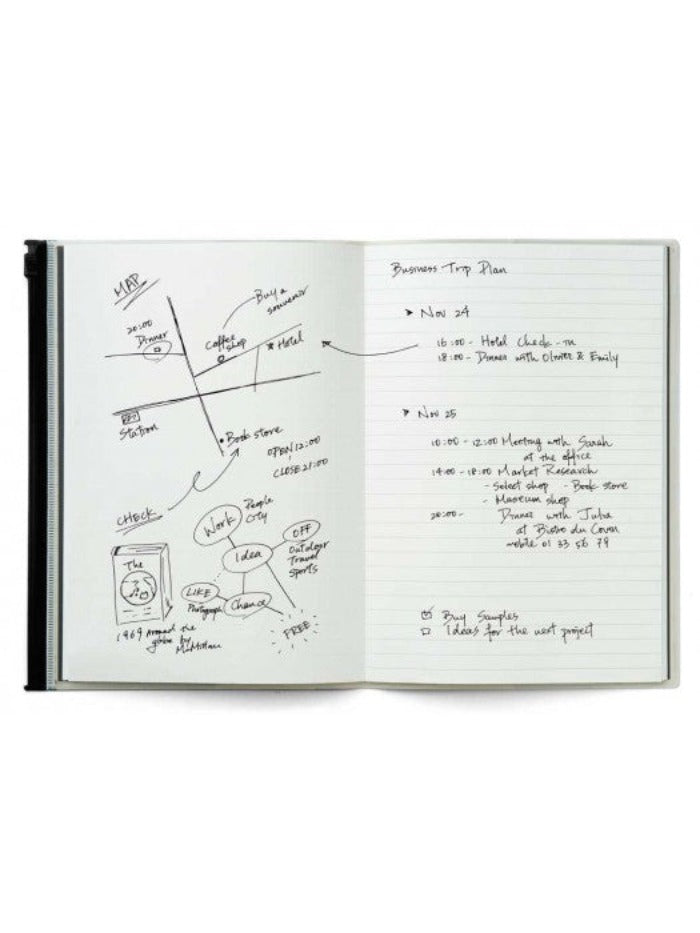 MAP
Buy a
souvenir
20:00
Dinner
Coffee
shop
Hotel
Station
Book store
OPEN 12:00
CLOSE 21:00
CHECK
People
City
Work
OFF
Idea
Outdoor
Travel
Sports
The
LIKE
Photograph
Chance
FREE
1969 Around the
globe by
Business Trip Plan
Nov 24
16:00 - Hotel Check-in
18:00 - Dinner with Olivier & Emily
Nov 25
10:00 - 12:00 Meeting with Sarah
at the office
14:00 - 18:00 Market Research
- Select shop - Book store
- Museum shop
20:00 - Dinner with Julia
at Bistro du
mobile 01 33 56 79
Buy Samples
Ideas for the next project